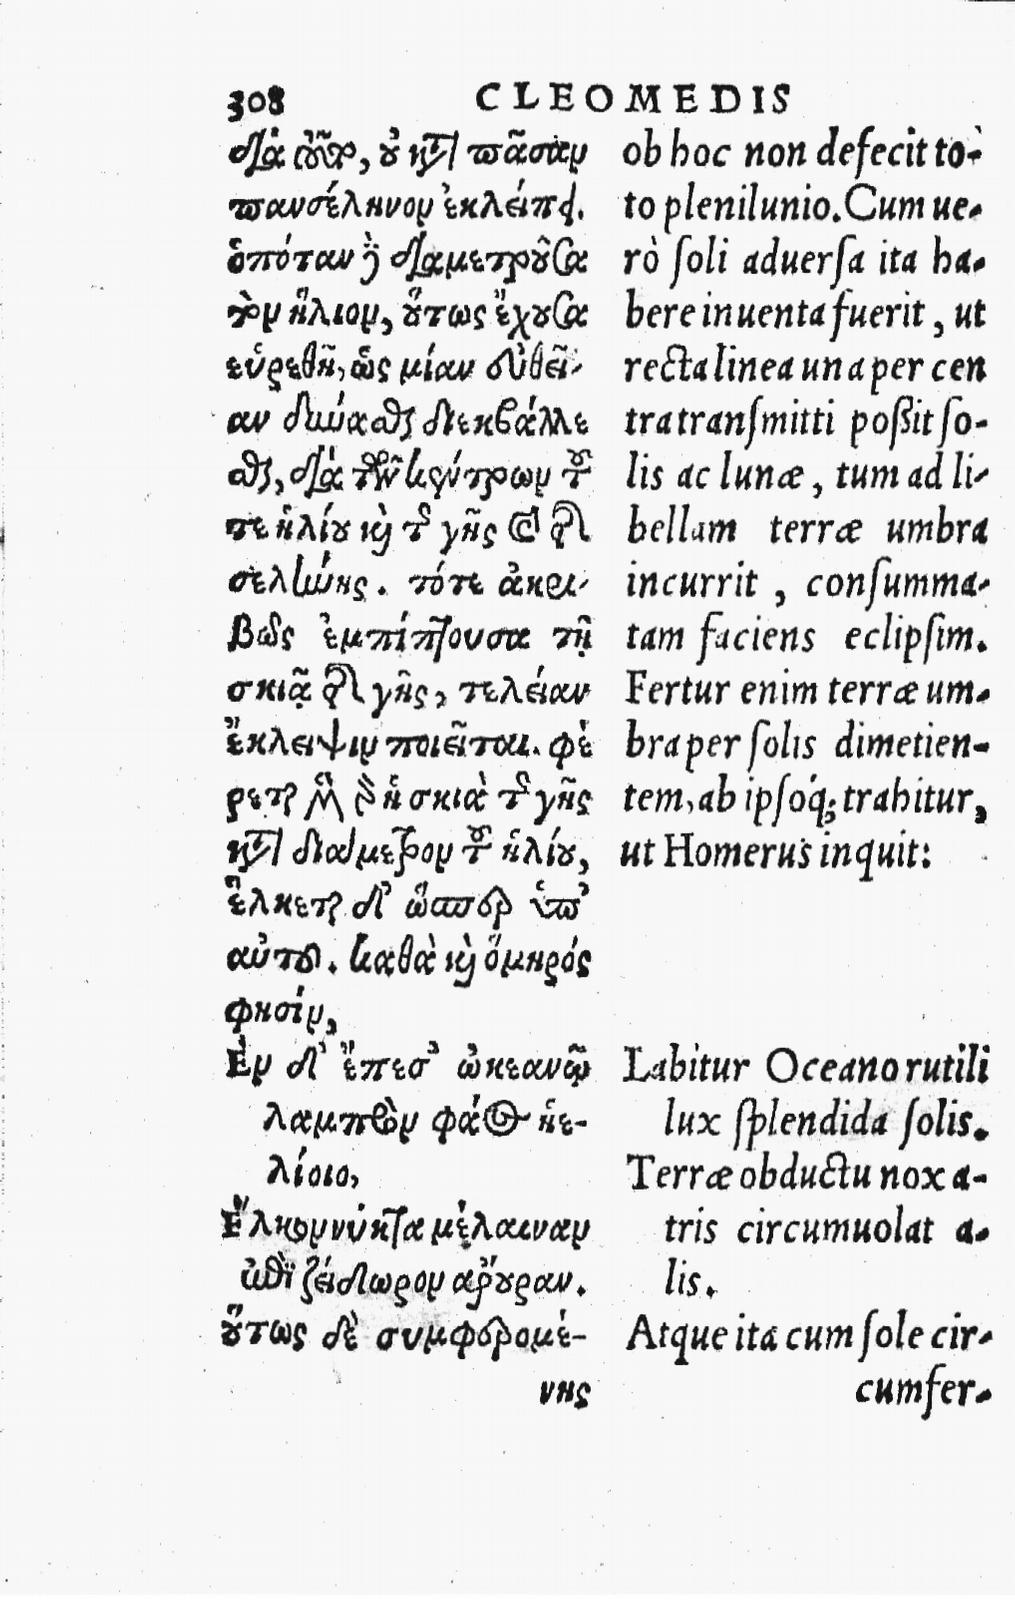 308
CLEOMEDIS
διὰ τοῦτο, οὐ κατὰ πᾶσαν
πανσέληνον ἐκλείπει.
ὁπόταν δὲ διαμετροῦσα
τὸν ἥλιον, οὕτως ἔχουσα
εὑρεθῇ, ὡς μίαν εὐθεῖ-
αν δύνασθαι διεκβάλλε
σθαι, διὰ τῶν κέντρων τοῦ
τε ἡλίου καὶ τῆς γῆς καὶ τῆς
σελήνης. τότε ἀκρι-
βῶς ἐμπίπτουσα τῇ
σκιᾷ τῆς γῆς, τελείαν
ἔκλειψιν ποιεῖται. φέ
ρεται μὲν γὰρ ἡ σκιὰ τῆς γῆς
κατὰ διάμετρον τοῦ ἡλίου,
ἕλκεται δ' ὥσπερ ὑπ'
αὐτοῦ. καθὰ καὶ ὅμηρός
φησίν,
Ἐν δ' ἔπεσ' ὠκεανῷ
λαμπρὸν φάος ἠε-
λίοιο,
Ἕλκον νύκτα μέλαιναν
ἐπὶ ζείδωρον ἄρουραν.
οὕτως δὲ συμφερομέ-
νης
ob hoc non defecit to-
to plenilunio. Cum ue-
rò ſoli aduerſa ita ha-
bere inuenta fuerit, ut
recta linea una per cen
tra tranſmitti poßit ſo-
lis ac lunæ, tum ad li-
bellam terræ umbra
incurrit, conſumma-
tam faciens eclipſim.
Fertur enim terræ um-
bra per ſolis dimetien-
tem, ab ipſoq́; trahitur,
ut Homerus inquit:
Labitur Oceano rutili
lux ſplendida ſolis.
Terræ obductu nox a-
tris circumuolat a-
lis.
Atque ita cum ſole cir-
cumfer-